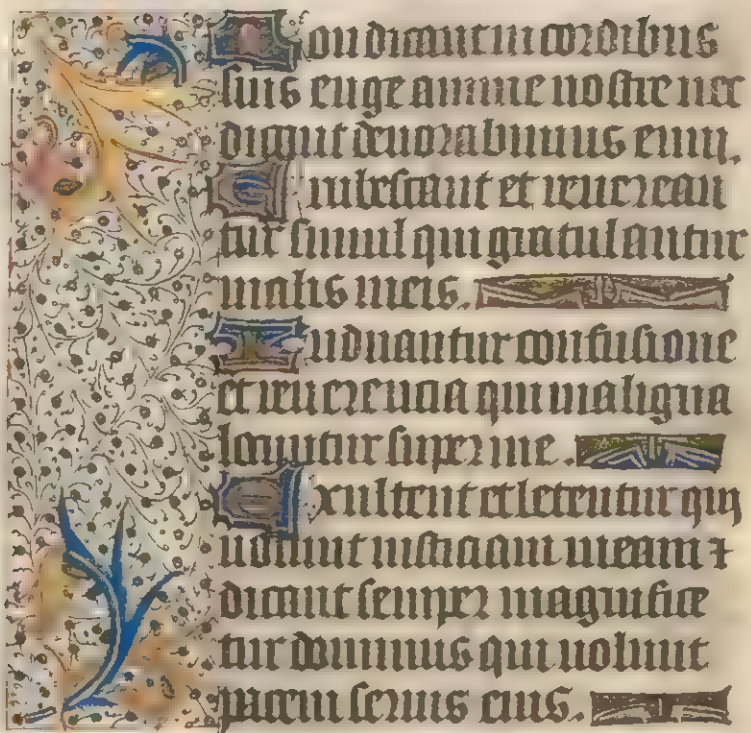 Non dicant in cordibus
suis euge anime nostre nec
dicant devorabimus eum.
Erubescant et reverean
tur simul qui gratulantur
malis meis.
Induantur confusione
et reverencia qui maligna
locuntur super me.
Exultent et letentur qui
volunt iusticiam meam ⁊
dicant semper magnifice
tur dominus qui volunt
pacem servis eius.